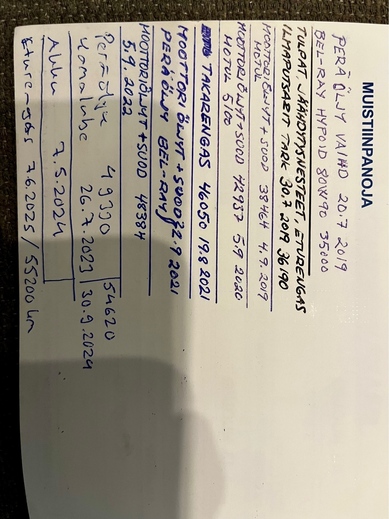 MUISTIINPANOJA
PERÄÖLJY VAIHD 20.7 2019
BEL-RAY HYPOID 80W90 35000
TULPAT, JÄÄHDYTYSNESTEET, ETURENGAS
ILMANPUSARIT TARK 30.7 2019 36190
MOOTTORIÖLJYT + SUOD 38464 4.9.2019
MOTUL
MOOTTORIÖLJYT+SUOD 42937 5.9 2020
MOTUL 5100
TAKARENGAS 46050 19.8 2021
MOOTTORIÖLJYT + SUOD 22.9 2021
PERÄÖLJY (BEL-RAY)
MOOTTORIÖLJYT + SUOD 48384
5.9.2022
Peräöljy 49390 | 54620
26.7.2023 | 30.9.2024
Akku 7.5.2024
Eturengas 7.6.2025 / 55200 km